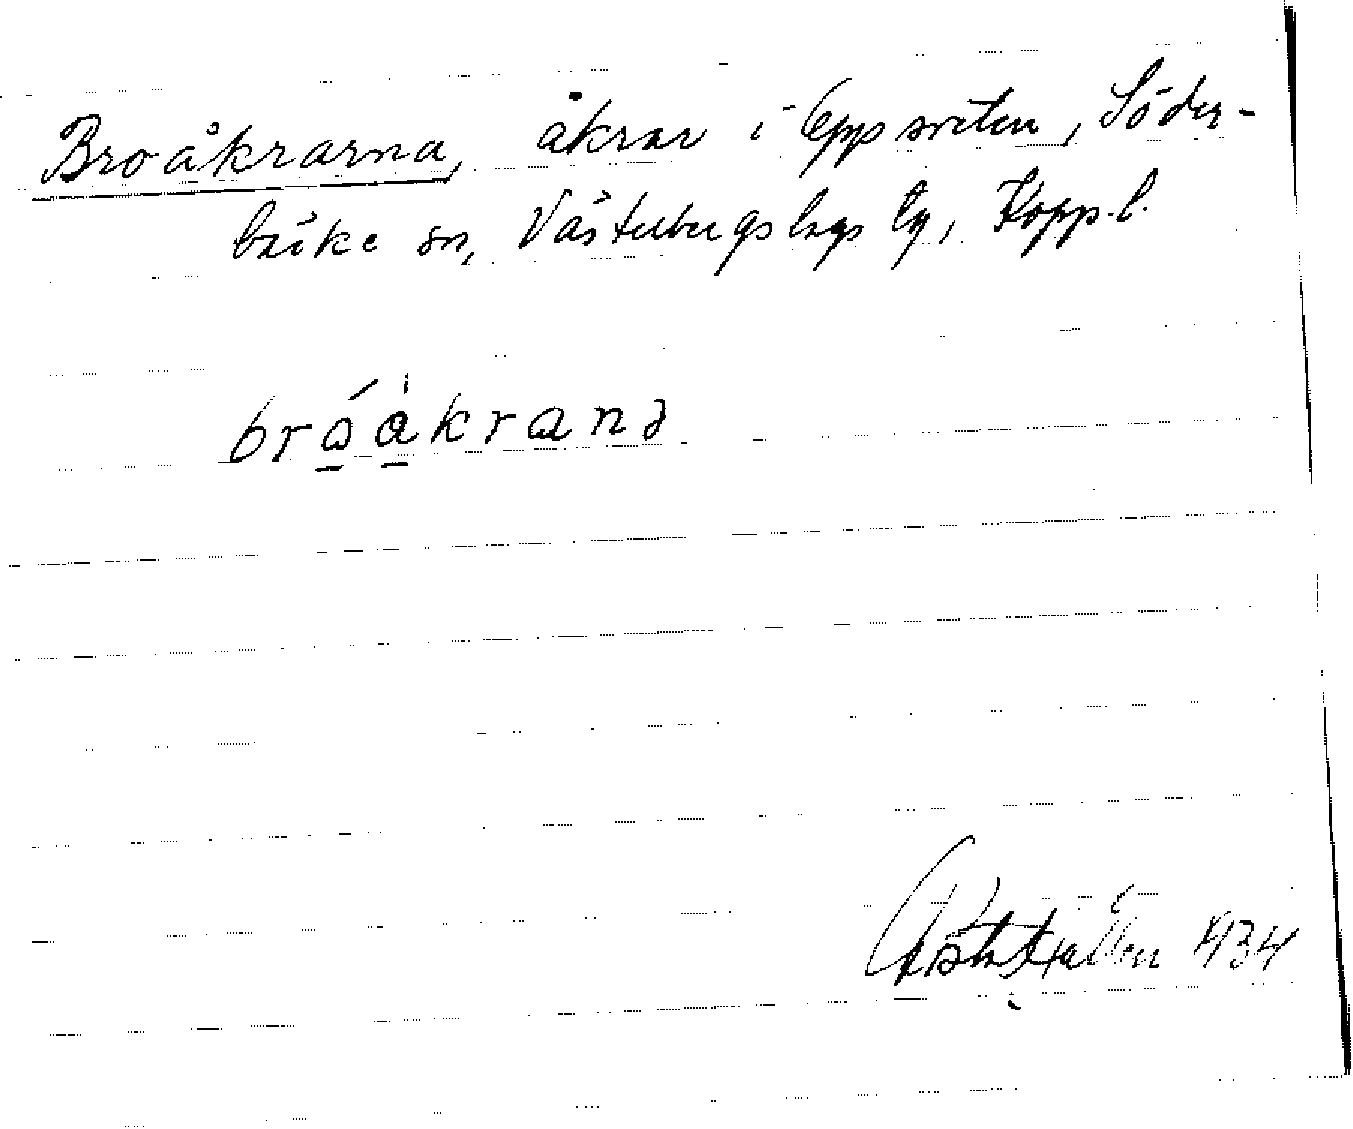 Broåkrarna, åkrar i Eppsveten, Söder-
bärke sn, Västerbergslags tg, Kopp.l.
bróåkranə
1934